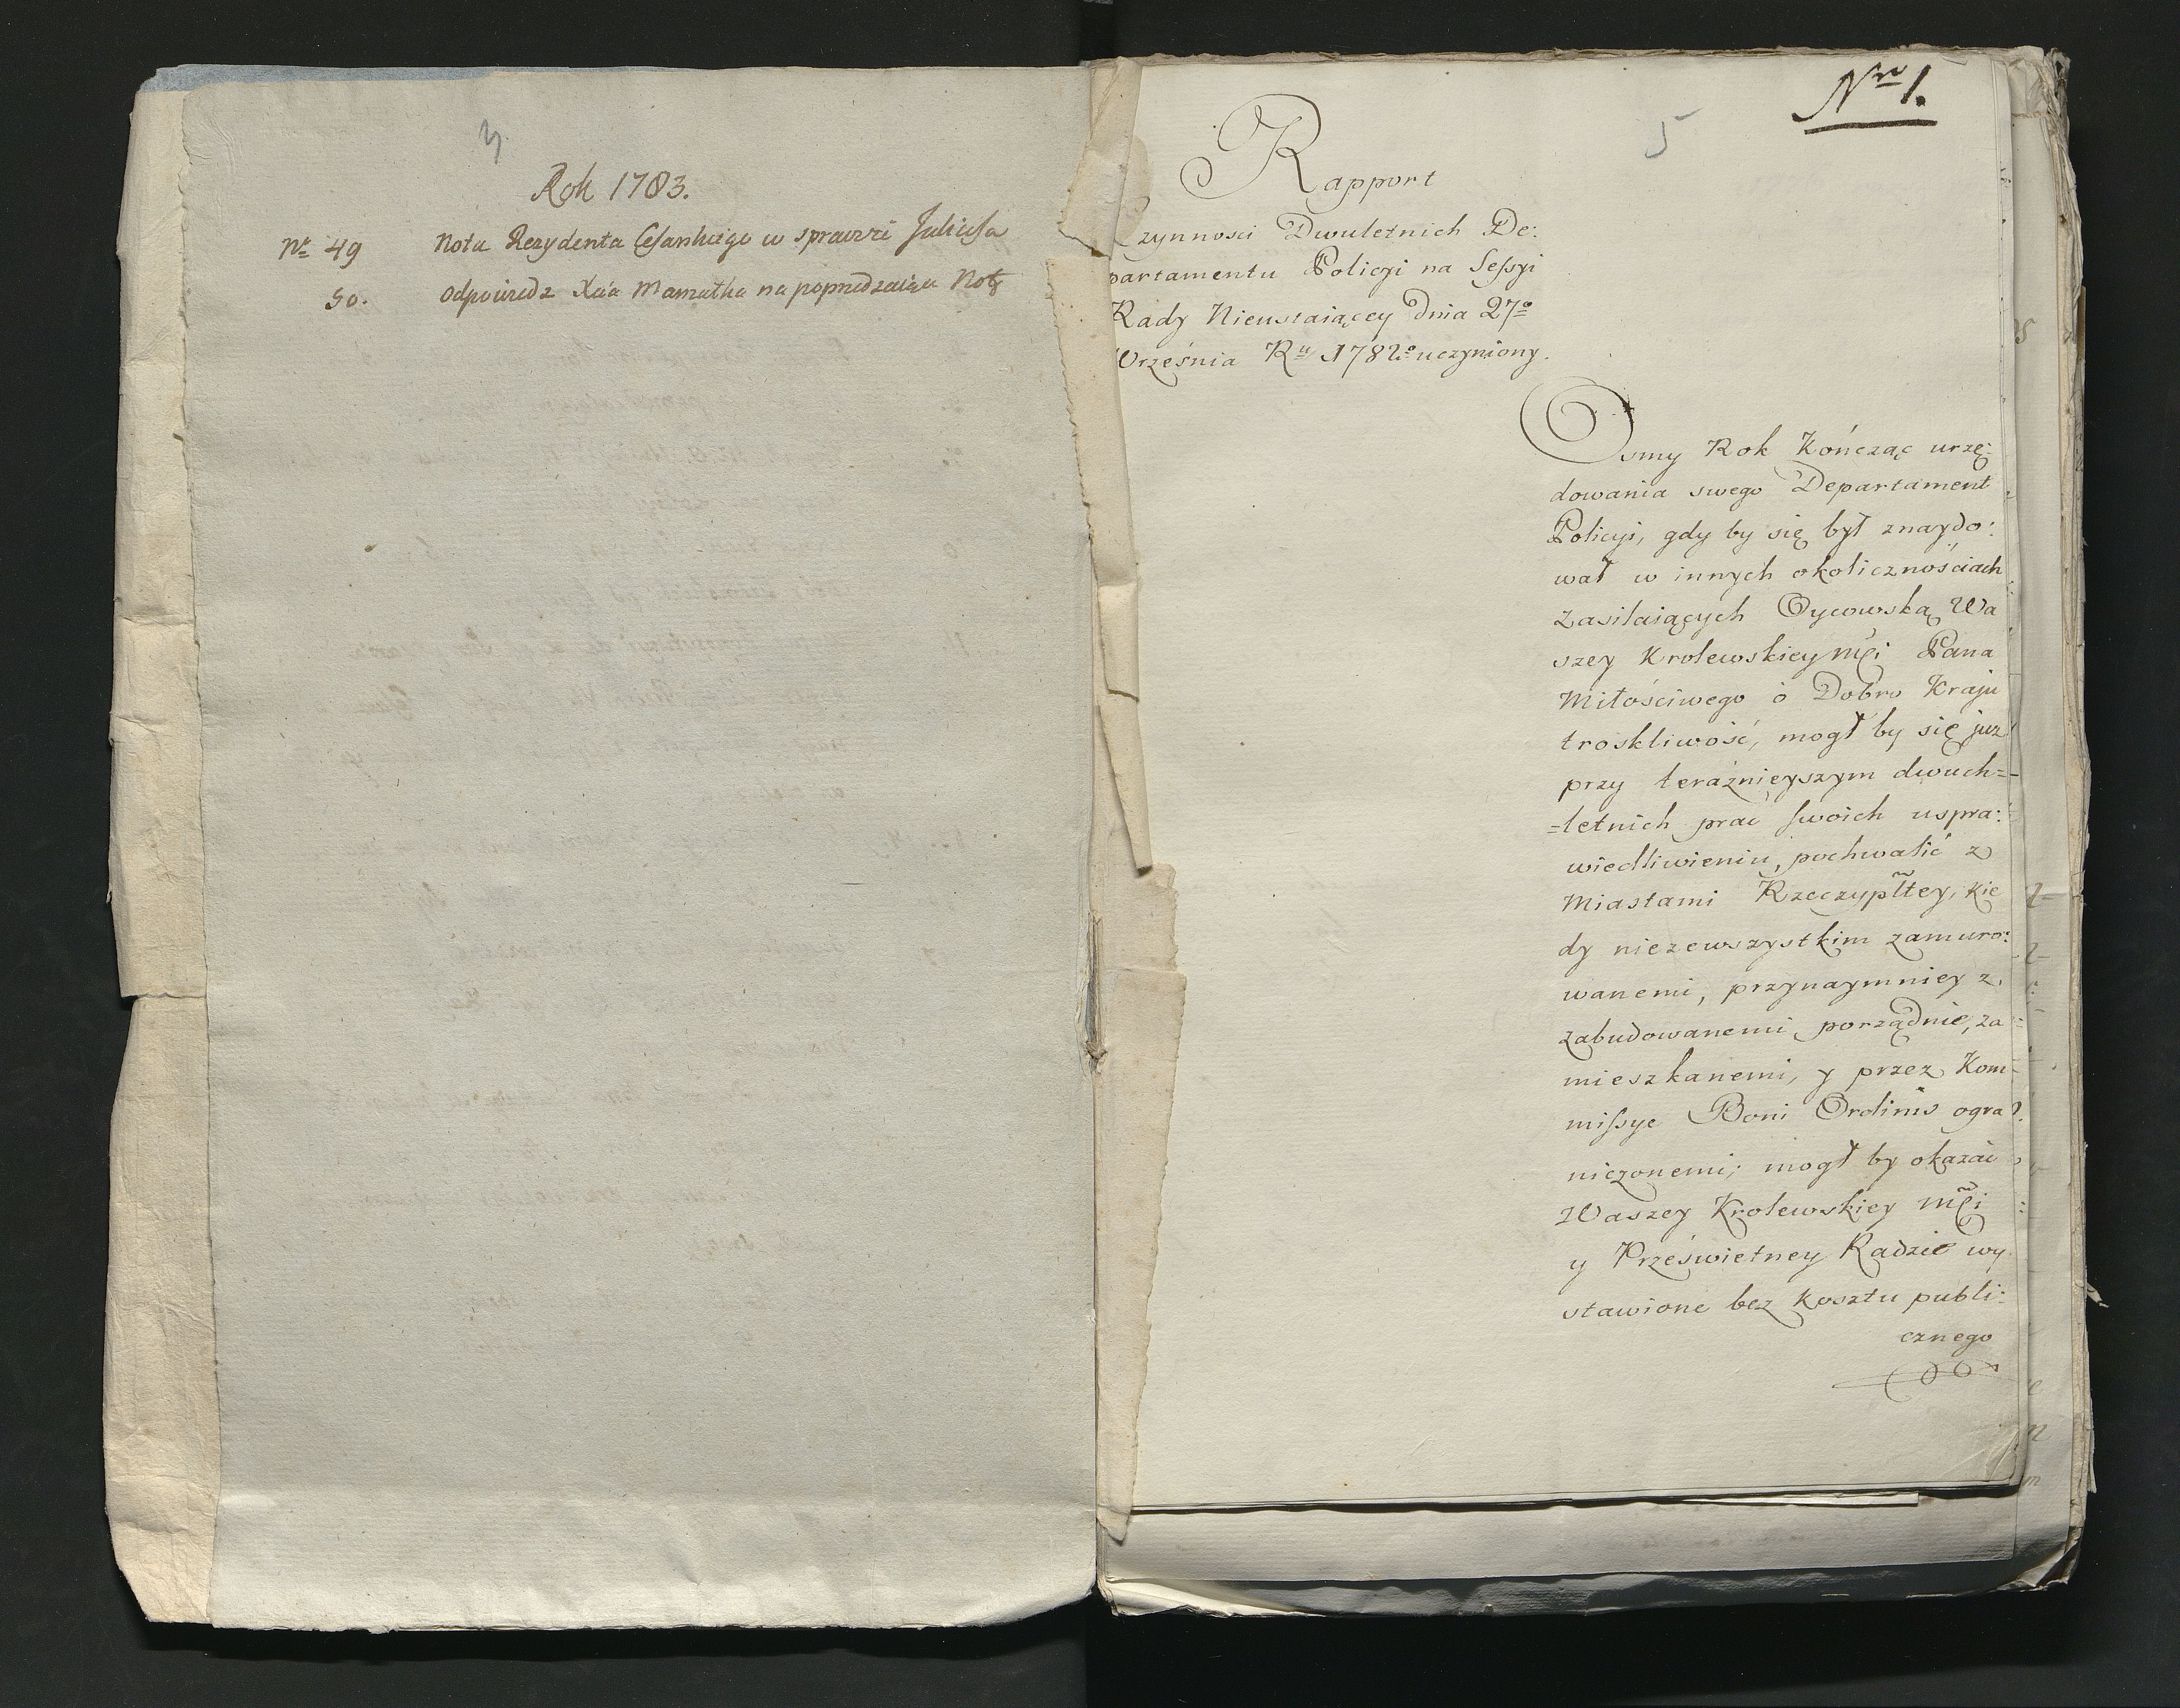 3.
Rok 1783.
Nr 49 Nota Rezydenta Cesarskiego w sprawie Juliusa
50. Odpowiedz Xcia Marszałka na poprzedzaiącą Notę
Nro 1.
5
Rapport
Czynnosci Dwuletnich De:
partamentu Policyi na Sessyi
Rady Nieustaiącey Dnia 27o
Września Ru 1782o uczyniony.
Osmy Rok Kończąc urzę:
dowania swego Departament
Policyi, gdy by się był znaydo:
wał w innych okolicznościach
zasilaiących Oycowską Wa
szey Krolewskiey Mci Pana
Miłościwego o Dobro Kraju
troskliwość, mogł by się juz
przy teraźnieyszym dwuch=
=letnich prac swoich uspra:
wiedliwieniu, pochwalić z
Miastami Rzeczypltey, kie
dy niezewszystkim zamuro:
wanemi, przynaymniey z.
zabudowanemi porządnie, za
mieszkanemi, y przez Kom-
missye Boni Ordinis ogra
niczonemi; mogł by okazać
Waszey Krolewskiey Mci
y Prześwietney Radzie wy
stawione bez kosztu publi:
cznego